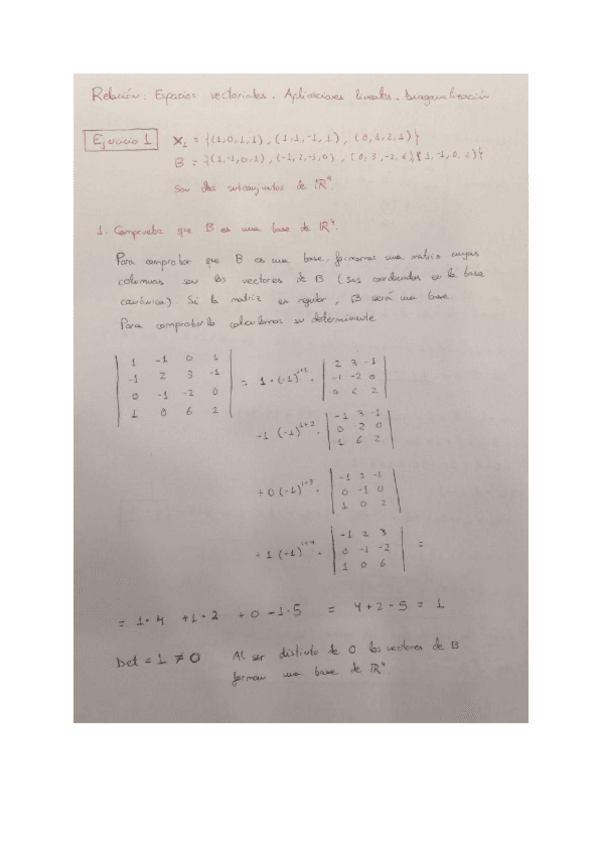 Relación: Espacios vectoriales. Aplicaciones lineales. Diagonalización
Ejercicio 1 X₁ = {(1,0,1,1), (1,1,-1,1), (0,1,2,1)}
B = {(1,-1,0,1), (-1,2,-1,0), (0,3,-2,6), (1,-1,0,2)}
Son dos subconjuntos de ℝ⁴.
1. Comprueba que B es una base de ℝ⁴.
Para comprobar que B es una base, formamos una matriz cuyas
columnas son los vectores de B (sus coordenadas en la base
canónica). Si la matriz es regular, B será una base.
Para comprobarlo calculamos su determinante
| 1 -1 0 1 |
| -1 2 3 -1 |
| 0 -1 -2 0 |
| 1 0 6 2 |
= 1·(-1)¹⁺¹·
| 2 3 -1 |
| -1 -2 0 |
| 0 6 2 |
-1 (-1)¹⁺²·
| -1 3 -1 |
| 0 -2 0 |
| 1 6 2 |
+0(-1)¹⁺³·
| -1 2 -1 |
| 0 -1 0 |
| 1 0 2 |
+1(-1)¹⁺⁴·
| -1 2 3 |
| 0 -1 -2 |
| 1 0 6 |
=
= 1·4 +1·2 +0 -1·5 = 4+2-5 = 1
Det = 1 ≠ 0 Al ser distinto de 0 los vectores de B
forman una base de ℝ⁴